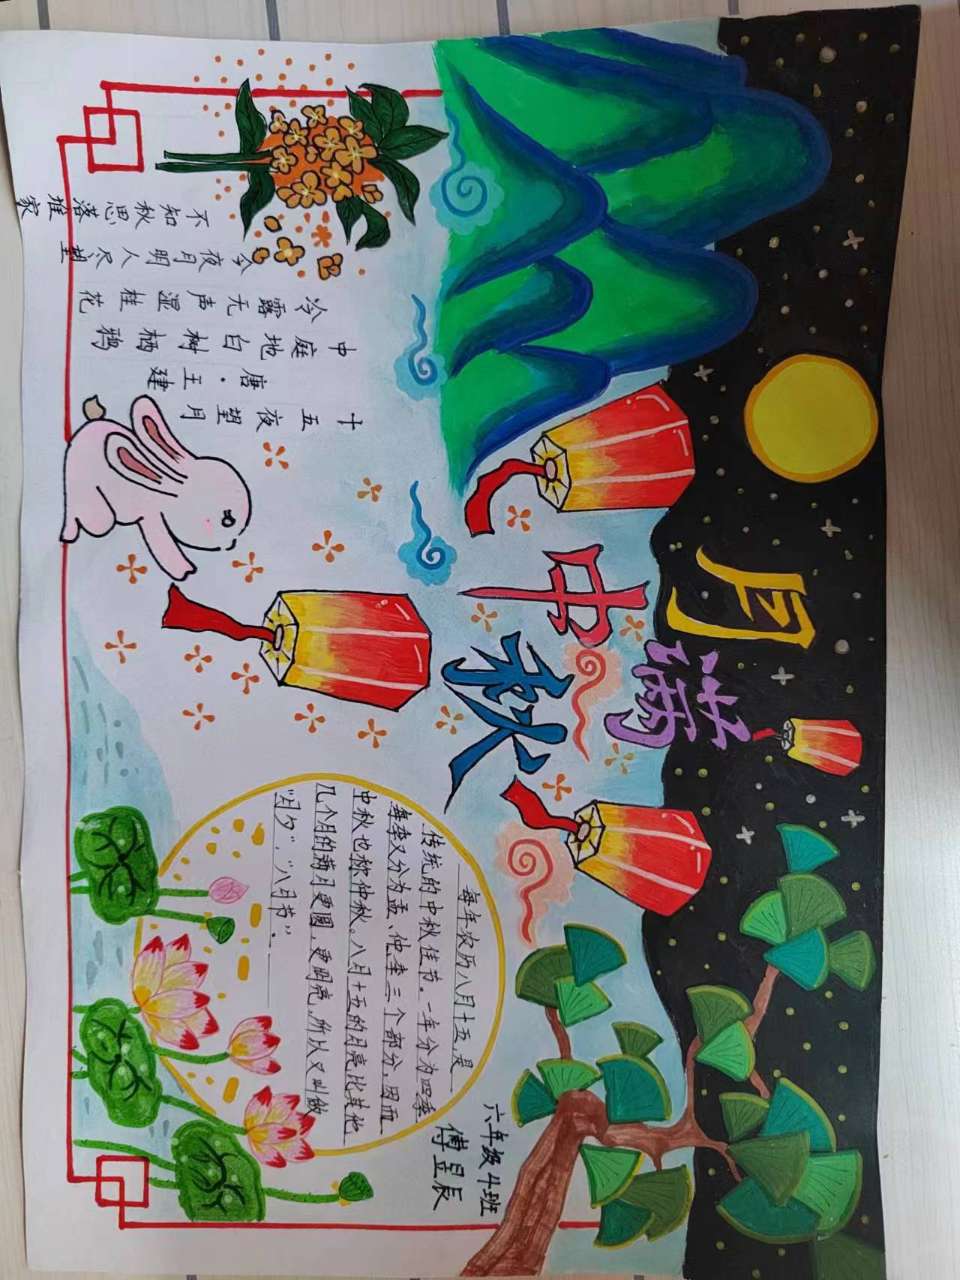 月满
中秋
六年级4班
傅昱辰
每年农历八月十五,是
传统的中秋佳节。一年分为四季
每季又分为孟、仲、季三个部分,因而
中秋也称仲秋。八月十五的月亮比其他
几个月的满月更圆,更明亮,所以又叫做
“月夕”,“八月节”。
十五夜望月
唐·王建
中庭地白树栖鸦
冷露无声湿桂花
今夜月明人尽望
不知秋思落堆家